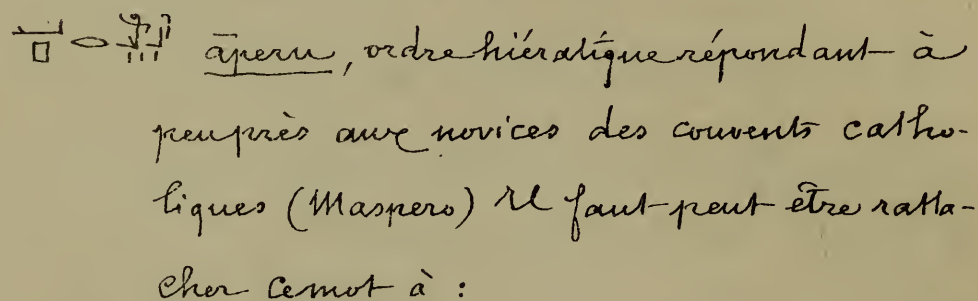 āperu, ordre hiératique répondant à
peuprès aux novices des couvents catho-
liques (Maspero) Il faut peut être ratta-
cher cemot à :